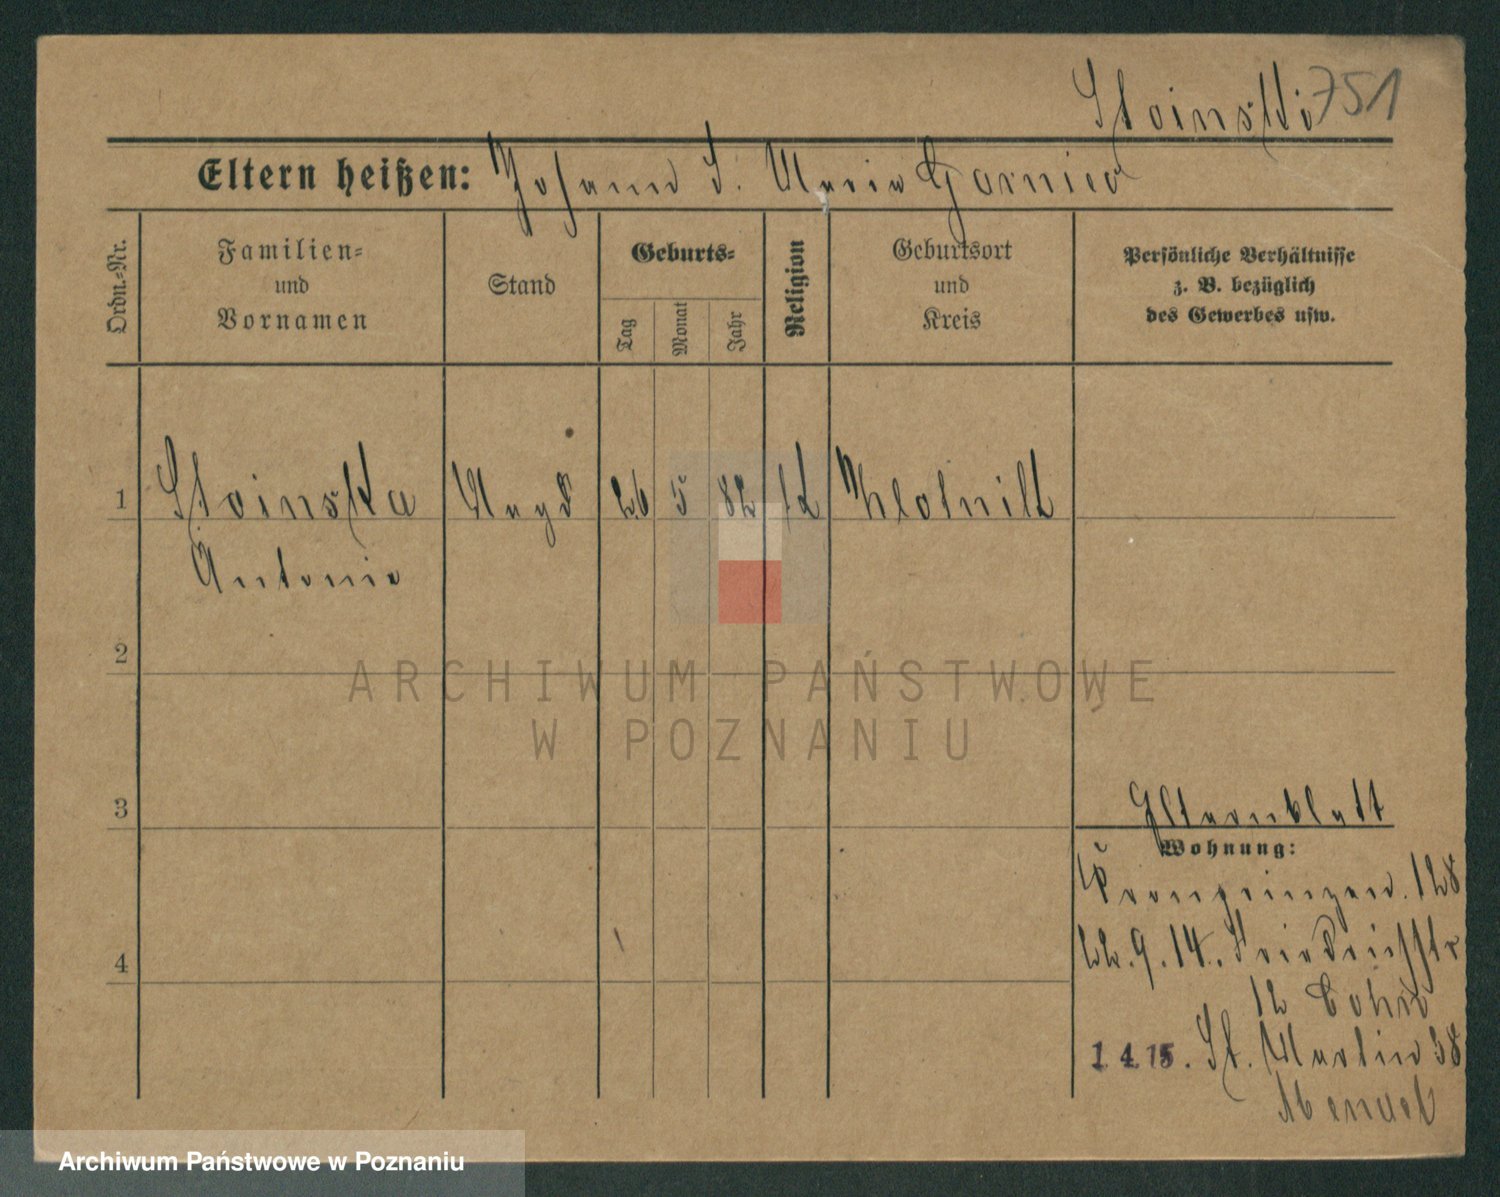 Stoinski 751
Eltern heißen: Johann S. Maria
Ordn.-Nr.
Familien-
und
Vornamen
Stand
Geburts-
Tag
Monat
Jahr
Religion
Geburtsort
und
Kreis
Persönliche Verhältnisse
z. B. bezüglich
des Gewerbes usw.
1 Stoinska Magd 26 5 82 Zlotnik
Antonie
2
ARCHIWUM PAŃSTWOWE
W POZNANIU
3
Elternblatt
Wohnung:
Kronprinzen. 128
4
22.9.14. Friedrichstr
12 Cohn
1.4.15. St. Martin 38
Archiwum Państwowe w Poznaniu